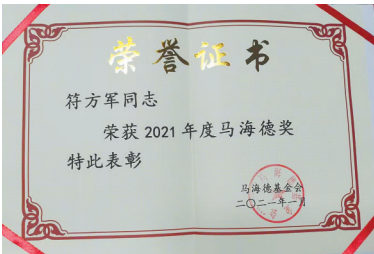 荣誉证书
符方军同志
荣获2021年度马海德奖
特此表彰
马海德基金会
二〇二一年一月